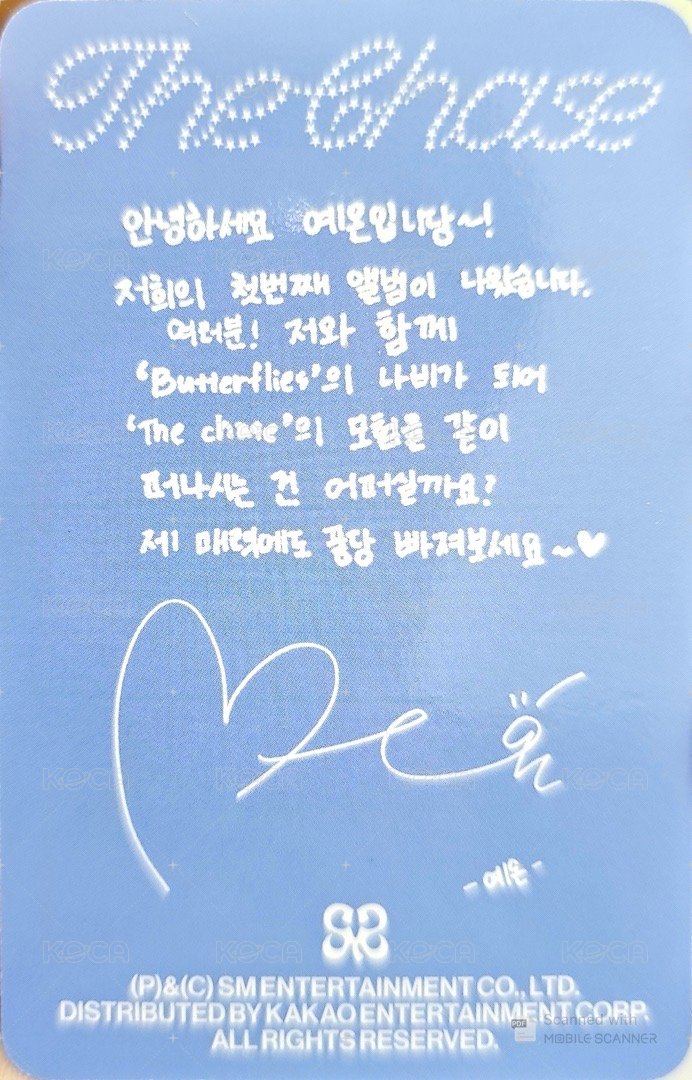 The Chase
안녕하세요 예온입니당~!
저희의 첫번째 앨범이 나왔습니다.
여러분! 저와 함께
'Butterflies'의 나비가 되어
'The chase'의 모험을 같이
떠나시는 건 어떠실까요?
제 매력에도 퐁당 빠져보세요~♥
- 예온 -
(P)&(C) SM ENTERTAINMENT CO., LTD.
DISTRIBUTED BY KAKAO ENTERTAINMENT CORP.
ALL RIGHTS RESERVED.
KOCA
PDF Scanned with
MOBILE SCANNER